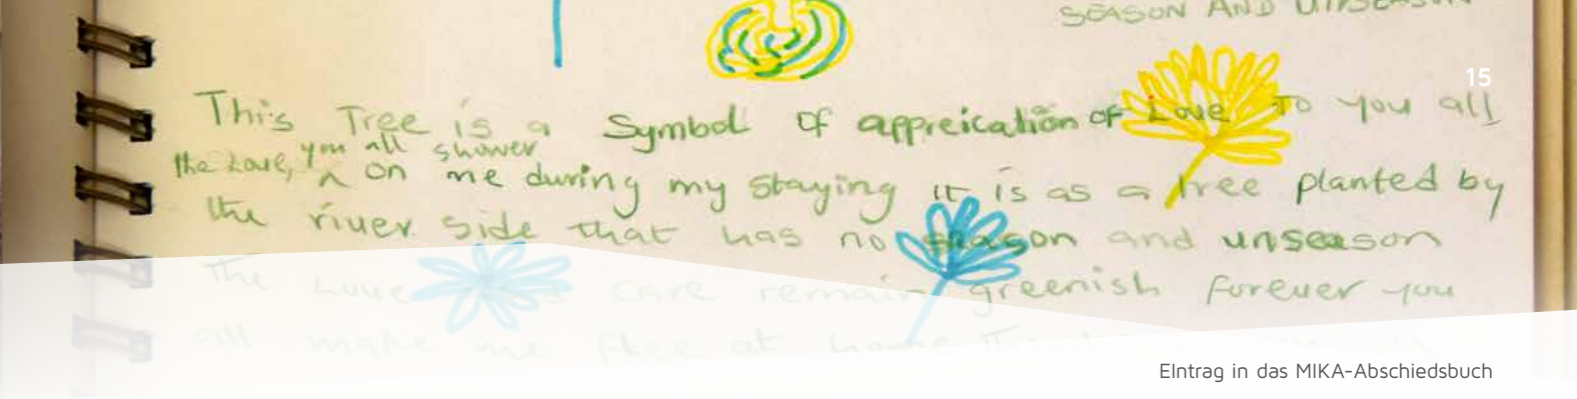 SEASON AND UNSEASON
15
This Tree is a Symbol of appreication of Love To you all
the Love, you all shower on me during my staying it is as a tree planted by
the river side that has no season and unseason
The Love care remain greenish forever you
all make me flee at home
EIntrag in das MIKA-Abschiedsbuch